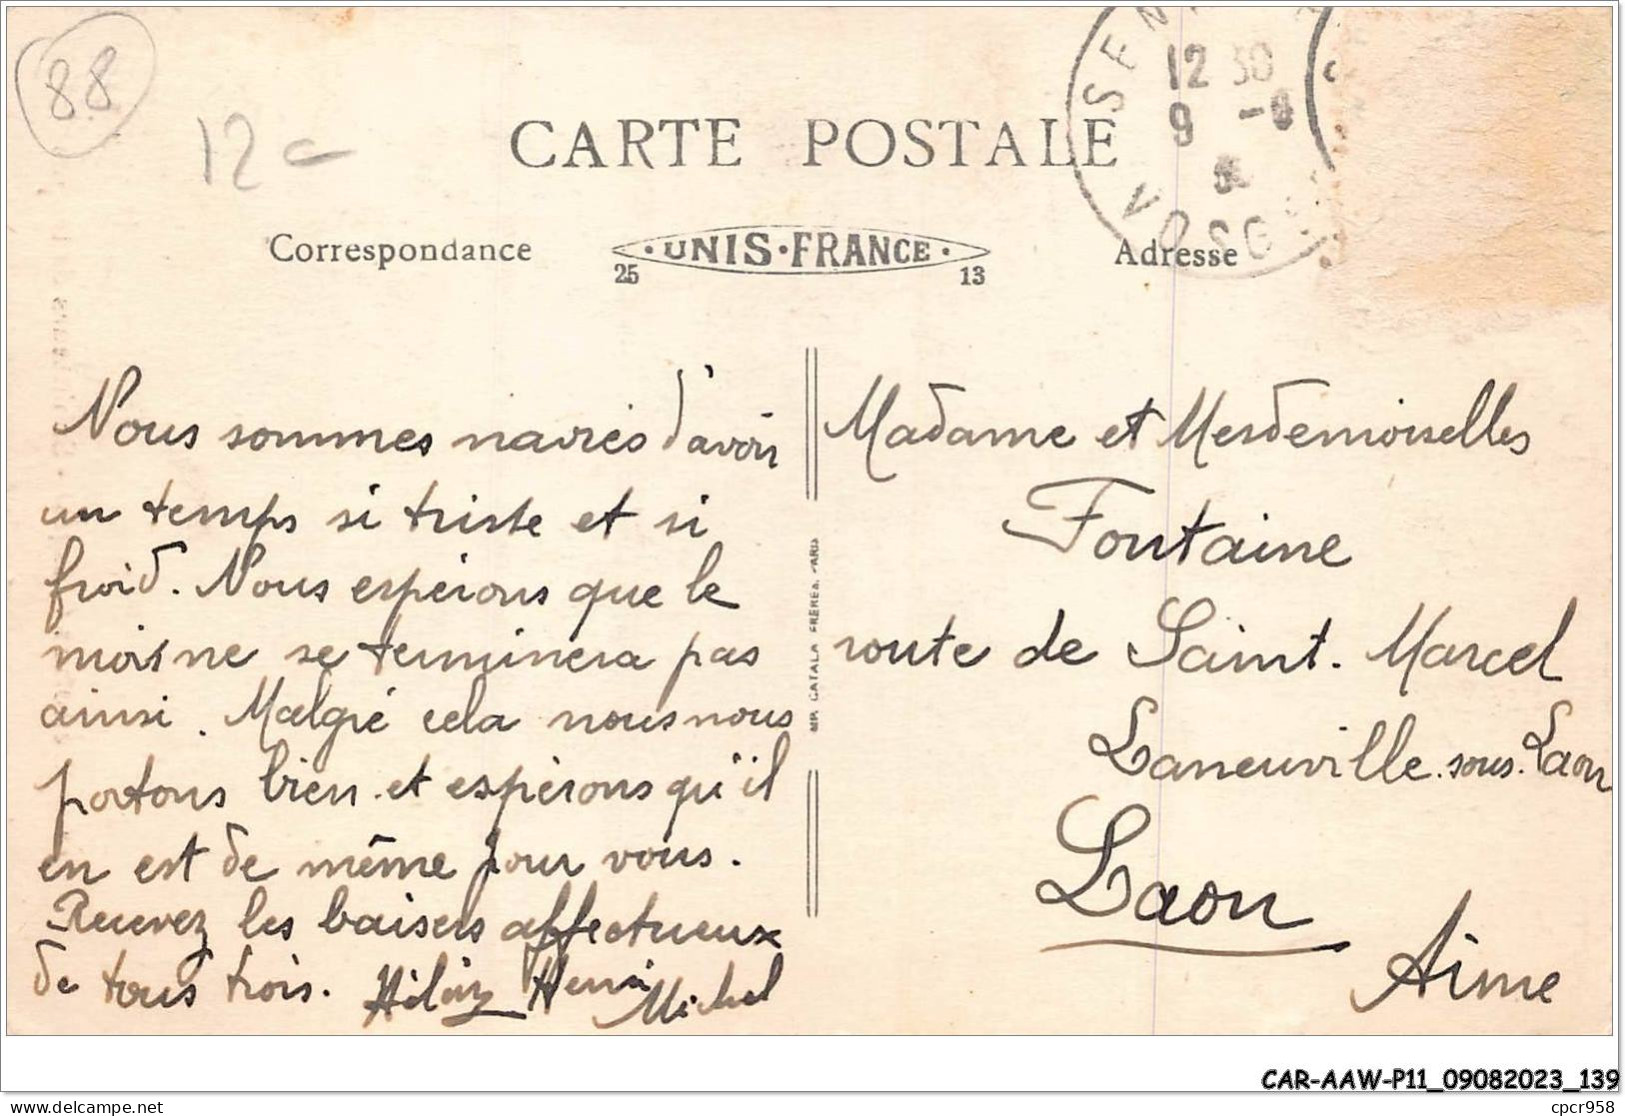 88
12
CARTE POSTALE
SEN
12 30
9 -8
VOSGES
Correspondance
UNIS-FRANCE
25 13
Adresse
Nous sommes navrés d'avoir
un temps si triste et si
froid. Nous espérions que le
mois ne se terminera pas
ainsi. Malgré cela nous nous
portons bien et espérons qu'il
en est de même pour vous.
Recevez les baisers affectueux
de tous trois. Henri Michel
IMP. CATALA FRÈRES, PARIS
Madame et Mesdemoiselles
Fontaine
route de Saint. Marcel
Laneuville.sous.Laon
Laon
Aisne
CAR-AAW-P11_09082023_139
cpcr958